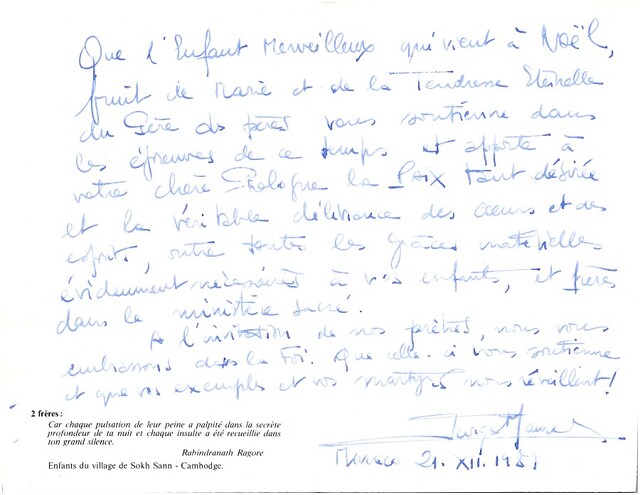 Que l'Enfant Merveilleux qui vient à Noël,
fruit de Marie et de la Tendresse Eternelle
du Père des pères vous soutienne dans
les épreuves de ce temps et apporte à
votre chère Pologne la PAIX tant désirée
et la véritable délivrance des cœurs et des
esprits, outre toutes les grâces matérielles
évidemment nécessaires à vos enfants, et frères
dans le ministère sacré.
A l'invitation de nos prêtres, nous vous
embrassons dans la Foi. Que celle-ci vous soutienne
et que vos exemples et vos martyrs nous réveillent!
Monaco 21. XII. 1981
2 frères :
Car chaque pulsation de leur peine a palpité dans la secrète
profondeur de ta nuit et chaque insulte a été recueillie dans
ton grand silence.
Rabindranath Ragore
Enfants du village de Sokh Sann - Cambodge.